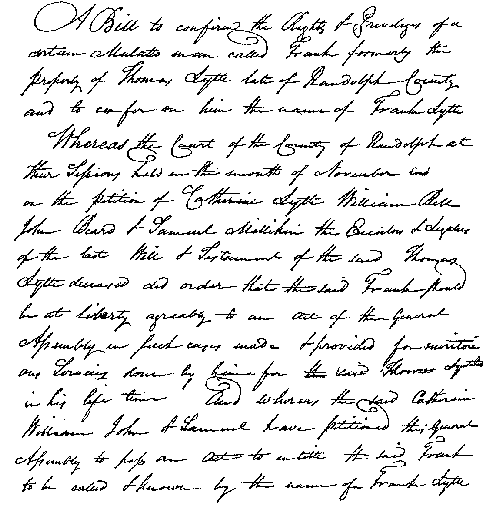 A Bill to confirm the Rights & Priviledges of a
certain Mulato man called Frank formerly the
property of Thomas Lytle late of Randolph County
and to confer on him the name of Frank Lytle
Whereas the Court of the County of Randolph at
their Sessions held in the month of November
on the petition of Catherine Lytle William Bell
John Beard & Samuel Millikin the Executors & Legatees
of the last Will & Testament of the said Thomas
Lytle deceased did order that the said Frank should
be at liberty agreeably to an act of the General
Assembly in such cases made & provided for meritori
ous Services done by him for the said Thomas Lytle
in his life time And whereas the said Catherine
William John & Samuel have petitioned this General
Assembly to pass an Act to entitle the said Frank
to be called & known by the name of Frank Lytle